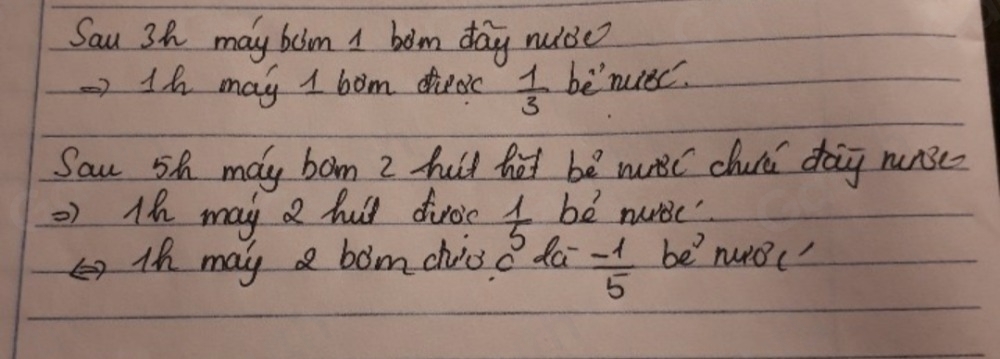 Sau 3h máy bơm 1 bơm đầy nước
=> 1h máy 1 bơm được 1/3 bể nước.
Sau 5h máy bơm 2 hút hết bể nước chứa đầy nước
=> 1h máy 2 hút được 1/5 bể nước.
<=> 1h máy 2 bơm được là -1/5 bể nước